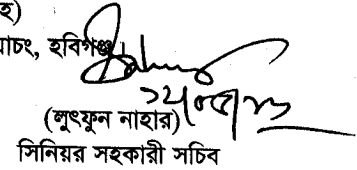 হ)
াচং, হবিগঞ্জ
(লুৎফুন নাহার)
সিনিয়র সহকারী সচিব